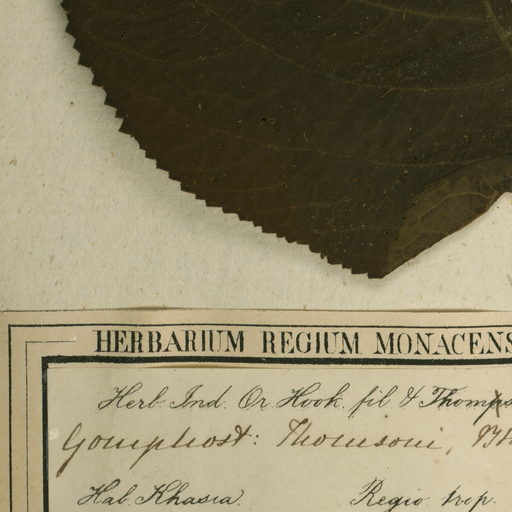 HERBARIUM REGIUM MONACENS
Herb. Ind. Or. Hook. fil & Thomps
Gomphost: Thomsoni, Bth
Hab. Khasia. Regio trop.